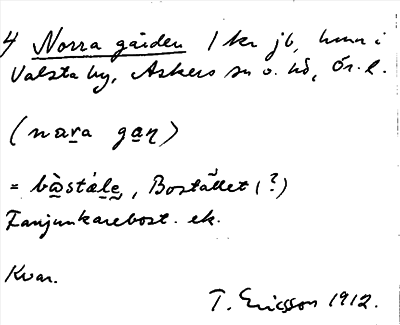 4 Norra gården 1 kr jb, hmn i
Valsta by, Askers sn o. hd, Ör. l.
(nara gaɳ)
= bòstále, Bostället (?)
Fanjunkarebost. ek.
Kvar.
T. Ericsson 1912.